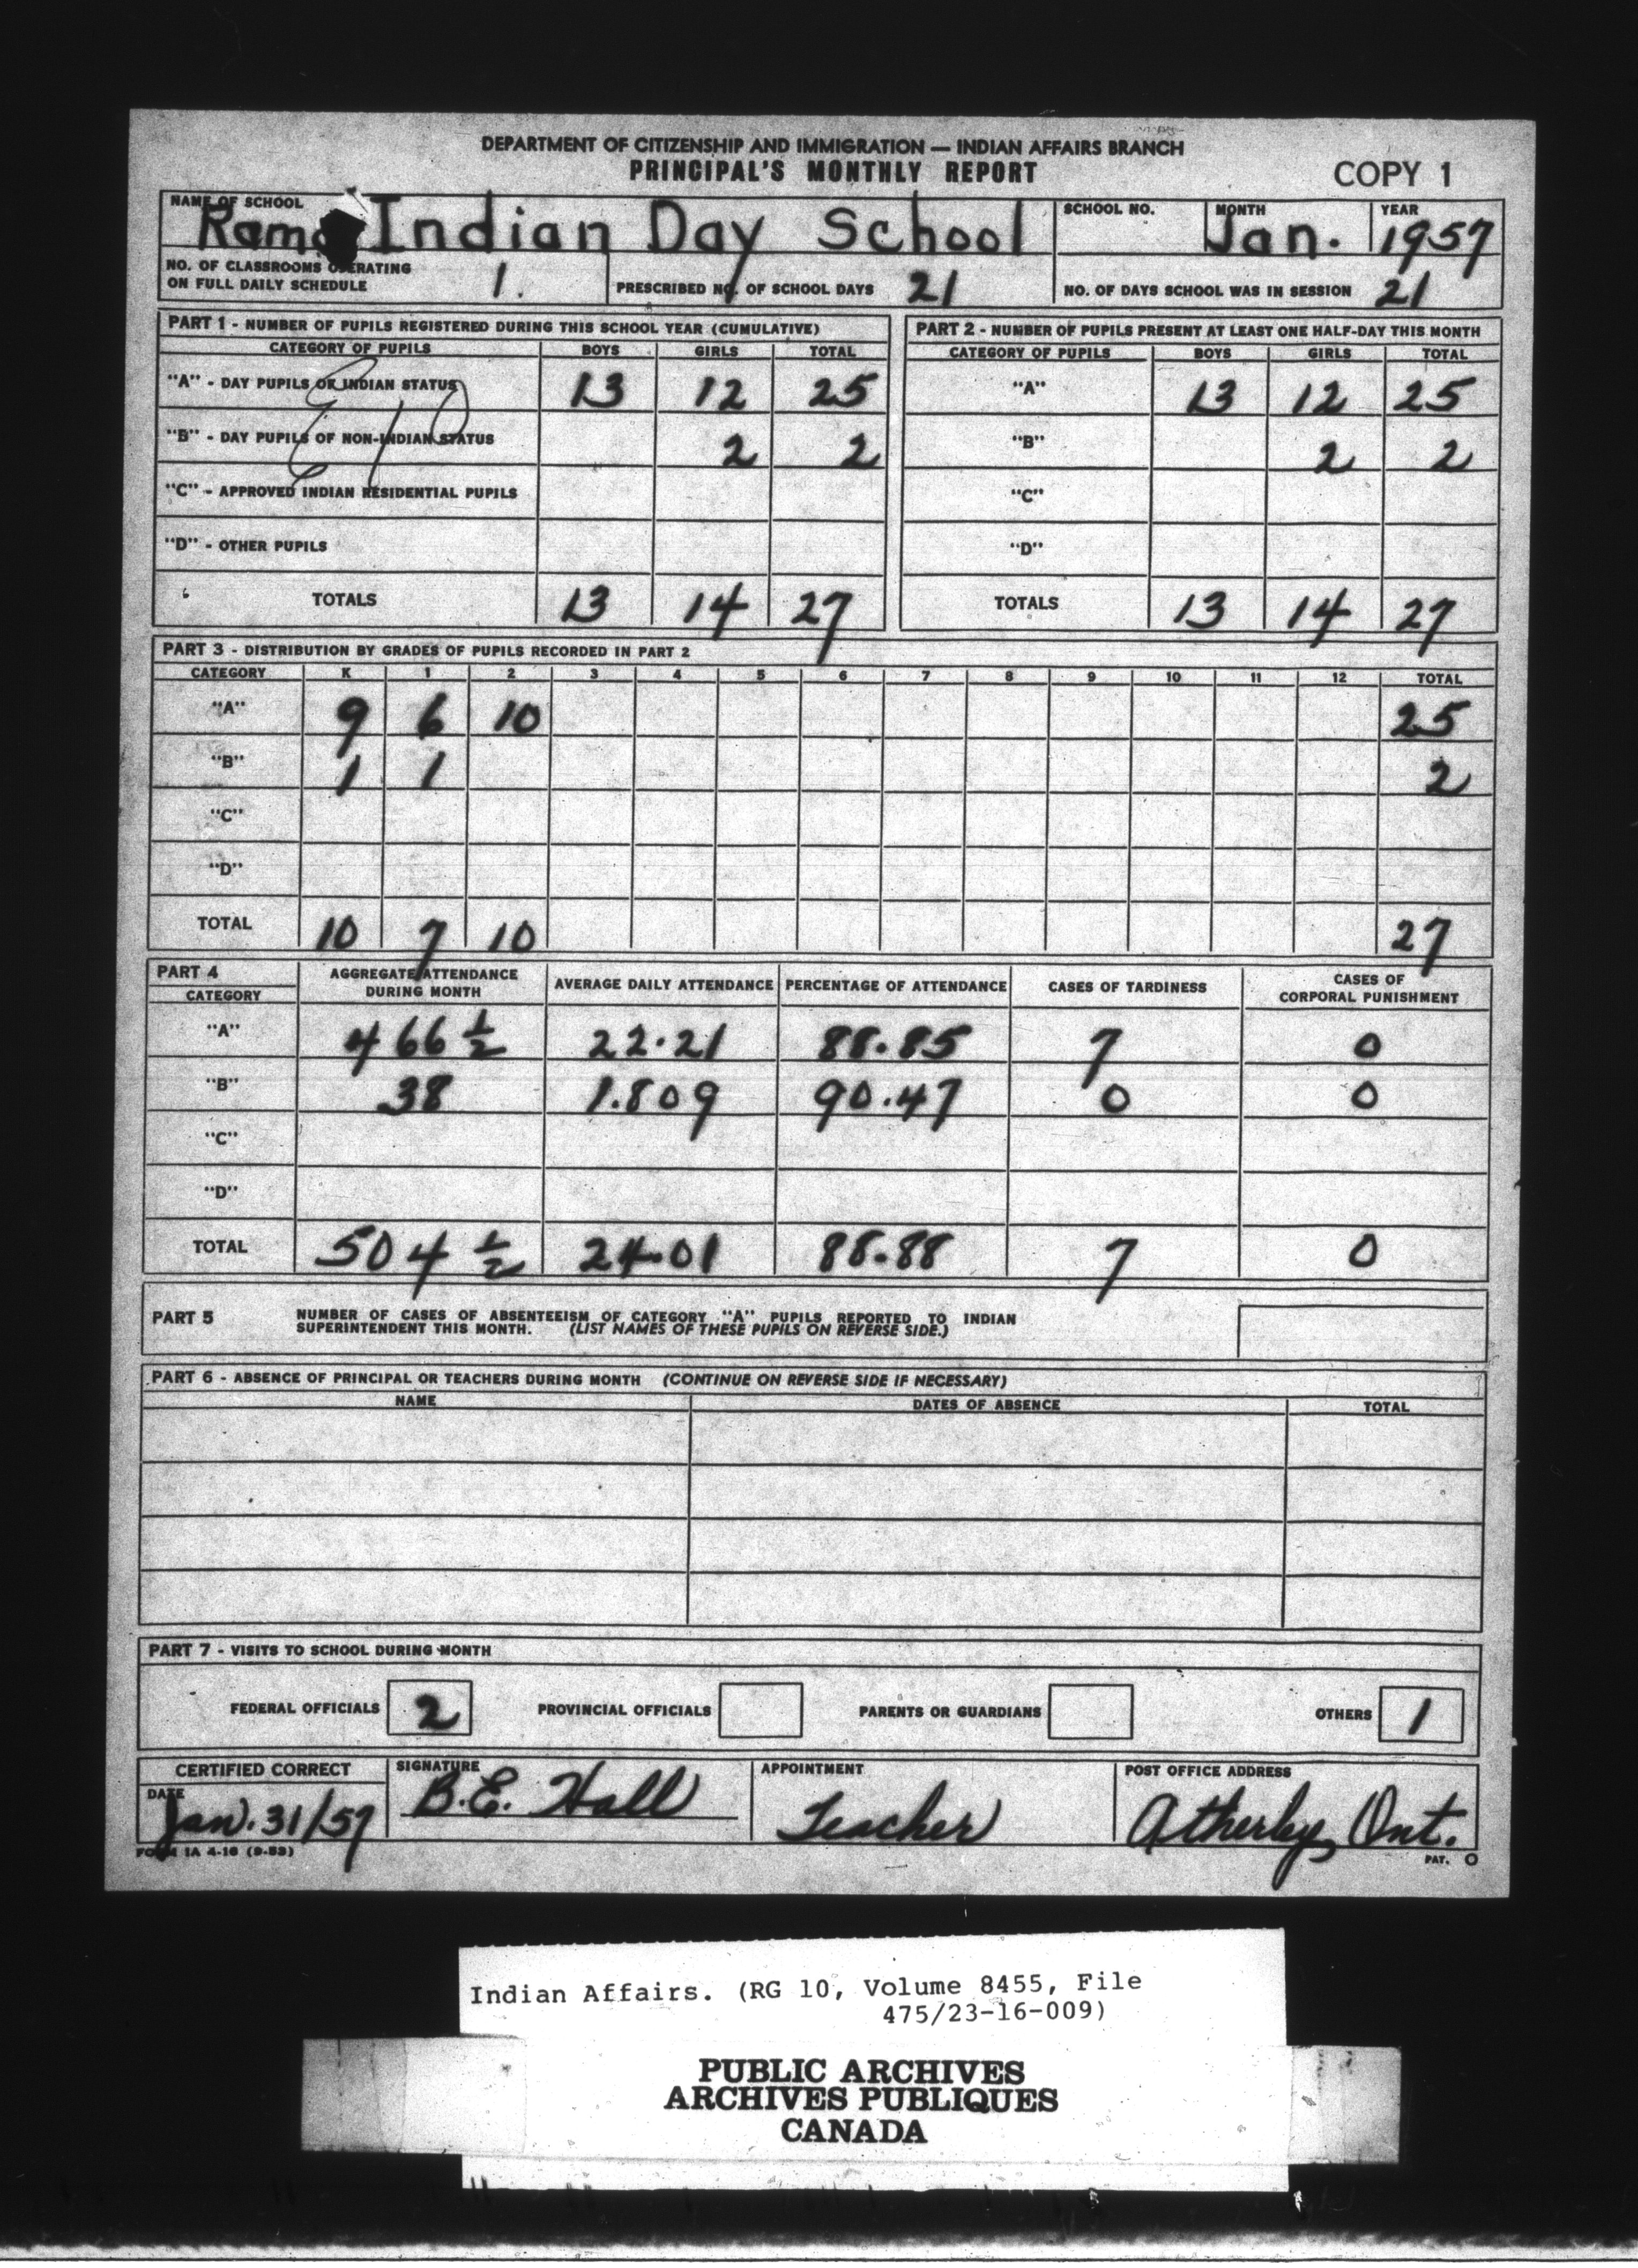 DEPARTMENT OF CITIZENSHIP AND IMMIGRATION — INDIAN AFFAIRS BRANCH
PRINCIPAL'S MONTHLY REPORT
COPY 1
NAME OF SCHOOL SCHOOL NO. MONTH YEAR
Rama Indian Day School Jan. 1957
NO. OF CLASSROOMS OPERATING
ON FULL DAILY SCHEDULE 1. PRESCRIBED NO. OF SCHOOL DAYS 21 NO. OF DAYS SCHOOL WAS IN SESSION 21
PART 1 - NUMBER OF PUPILS REGISTERED DURING THIS SCHOOL YEAR (CUMULATIVE)
CATEGORY OF PUPILS BOYS GIRLS TOTAL
"A" - DAY PUPILS OF INDIAN STATUS 13 12 25
"B" - DAY PUPILS OF NON-INDIAN STATUS 2 2
"C" - APPROVED INDIAN RESIDENTIAL PUPILS
"D" - OTHER PUPILS
TOTALS 13 14 27
PART 2 - NUMBER OF PUPILS PRESENT AT LEAST ONE HALF-DAY THIS MONTH
CATEGORY OF PUPILS BOYS GIRLS TOTAL
"A" 13 12 25
"B" 2 2
"C"
"D"
TOTALS 13 14 27
PART 3 - DISTRIBUTION BY GRADES OF PUPILS RECORDED IN PART 2
CATEGORY K 1 2 3 4 5 6 7 8 9 10 11 12 TOTAL
"A" 9 6 10 25
"B" 1 1 2
"C"
"D"
TOTAL 10 7 10 27
PART 4
CATEGORY AGGREGATE ATTENDANCE DURING MONTH AVERAGE DAILY ATTENDANCE PERCENTAGE OF ATTENDANCE CASES OF TARDINESS CASES OF CORPORAL PUNISHMENT
"A" 466 ½ 22.21 88.85 7 0
"B" 38 1.809 90.47 0 0
"C"
"D"
TOTAL 504 ½ 24.01 88.88 7 0
PART 5 NUMBER OF CASES OF ABSENTEEISM OF CATEGORY "A" PUPILS REPORTED TO INDIAN
SUPERINTENDENT THIS MONTH. (LIST NAMES OF THESE PUPILS ON REVERSE SIDE.)
PART 6 - ABSENCE OF PRINCIPAL OR TEACHERS DURING MONTH (CONTINUE ON REVERSE SIDE IF NECESSARY)
NAME DATES OF ABSENCE TOTAL
PART 7 - VISITS TO SCHOOL DURING MONTH
FEDERAL OFFICIALS 2 PROVINCIAL OFFICIALS PARENTS OR GUARDIANS OTHERS 1
CERTIFIED CORRECT SIGNATURE APPOINTMENT POST OFFICE ADDRESS
DATE
Jan. 31/57 B.E. Hall Teacher Atherley, Ont.
FORM IA 4-16 (9-53) PAT. O
Indian Affairs. (RG 10, Volume 8455, File
475/23-16-009)
PUBLIC ARCHIVES
ARCHIVES PUBLIQUES
CANADA